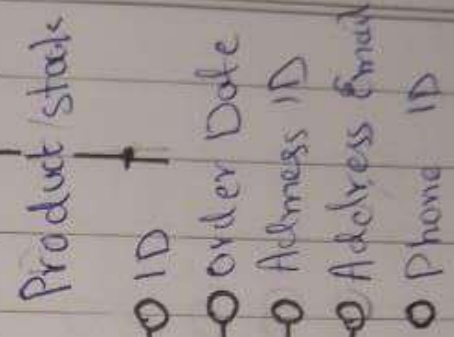 Product/stock
ID
Order Date
Admess ID
Address Email
Phone ID